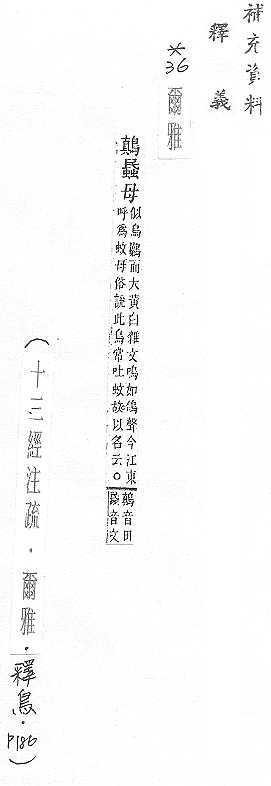 補充資料
釋義
*36 爾雅
鷏蟁母
似烏而大黃白雜文鳴如鴿聲今江東
呼爲蚊母俗說此鳥常吐蚊故以名云。
鷏音田
蟁音文
(十三經注疏.爾雅.釋鳥.P186)